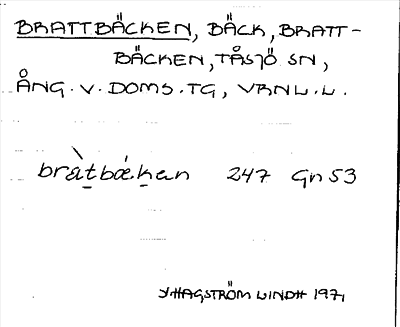 BRATTBÄCKEN, BÄCK, BRATT-
BÄCKEN, TÅSJÖ SN,
ÅNG. V. DOMS. TG, VRNL. L.
bràt̠bǽk̠an 247 Gn 53
Y. HAGSTRÖM LINDH 1971